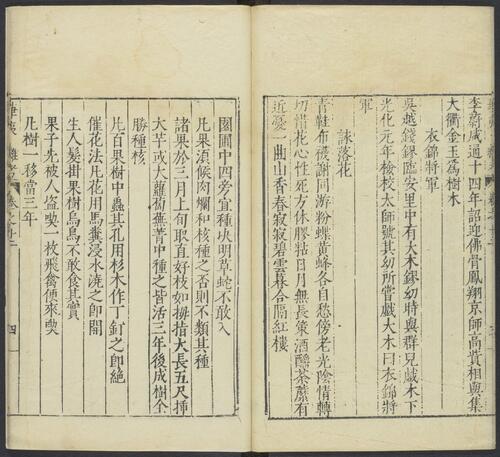 李蔚咸通十四年詔迎佛骨鳳翔京師高貲相與集
大衢金玉爲樹木
衣錦將軍
吳越錢鏐臨安里中有大木鏐幼時與群兒戲木下
光化元年檢校太師號其幼所嘗戲大木曰衣錦將
軍
誄落花
青鞋布襪謝同游粉蝶黃蜂各自愁傍老光陰情轉
切惜花心性死方休膠粘日月無長策酒酹茶蘼有
近憂一曲山香春寂寂碧雲暮合隔紅樓
園圃中四旁宜種決明草蛇不敢入
凡果須候肉爛和核種之否則不類其種
諸果於三月上旬取直好枝如拇指大長五尺揷
大芋或大蘿蔔蕪菁中種之皆活三年後成樹全
勝種核
凡百果樹中蟲其孔用杉木作丁釘之卽絶
催花法凡花用馬糞浸水澆之卽開
生人髮掛果樹烏鳥不敢食其實
果子先被人盜喫一枚飛禽便來喫
凡樹一移當三年
四